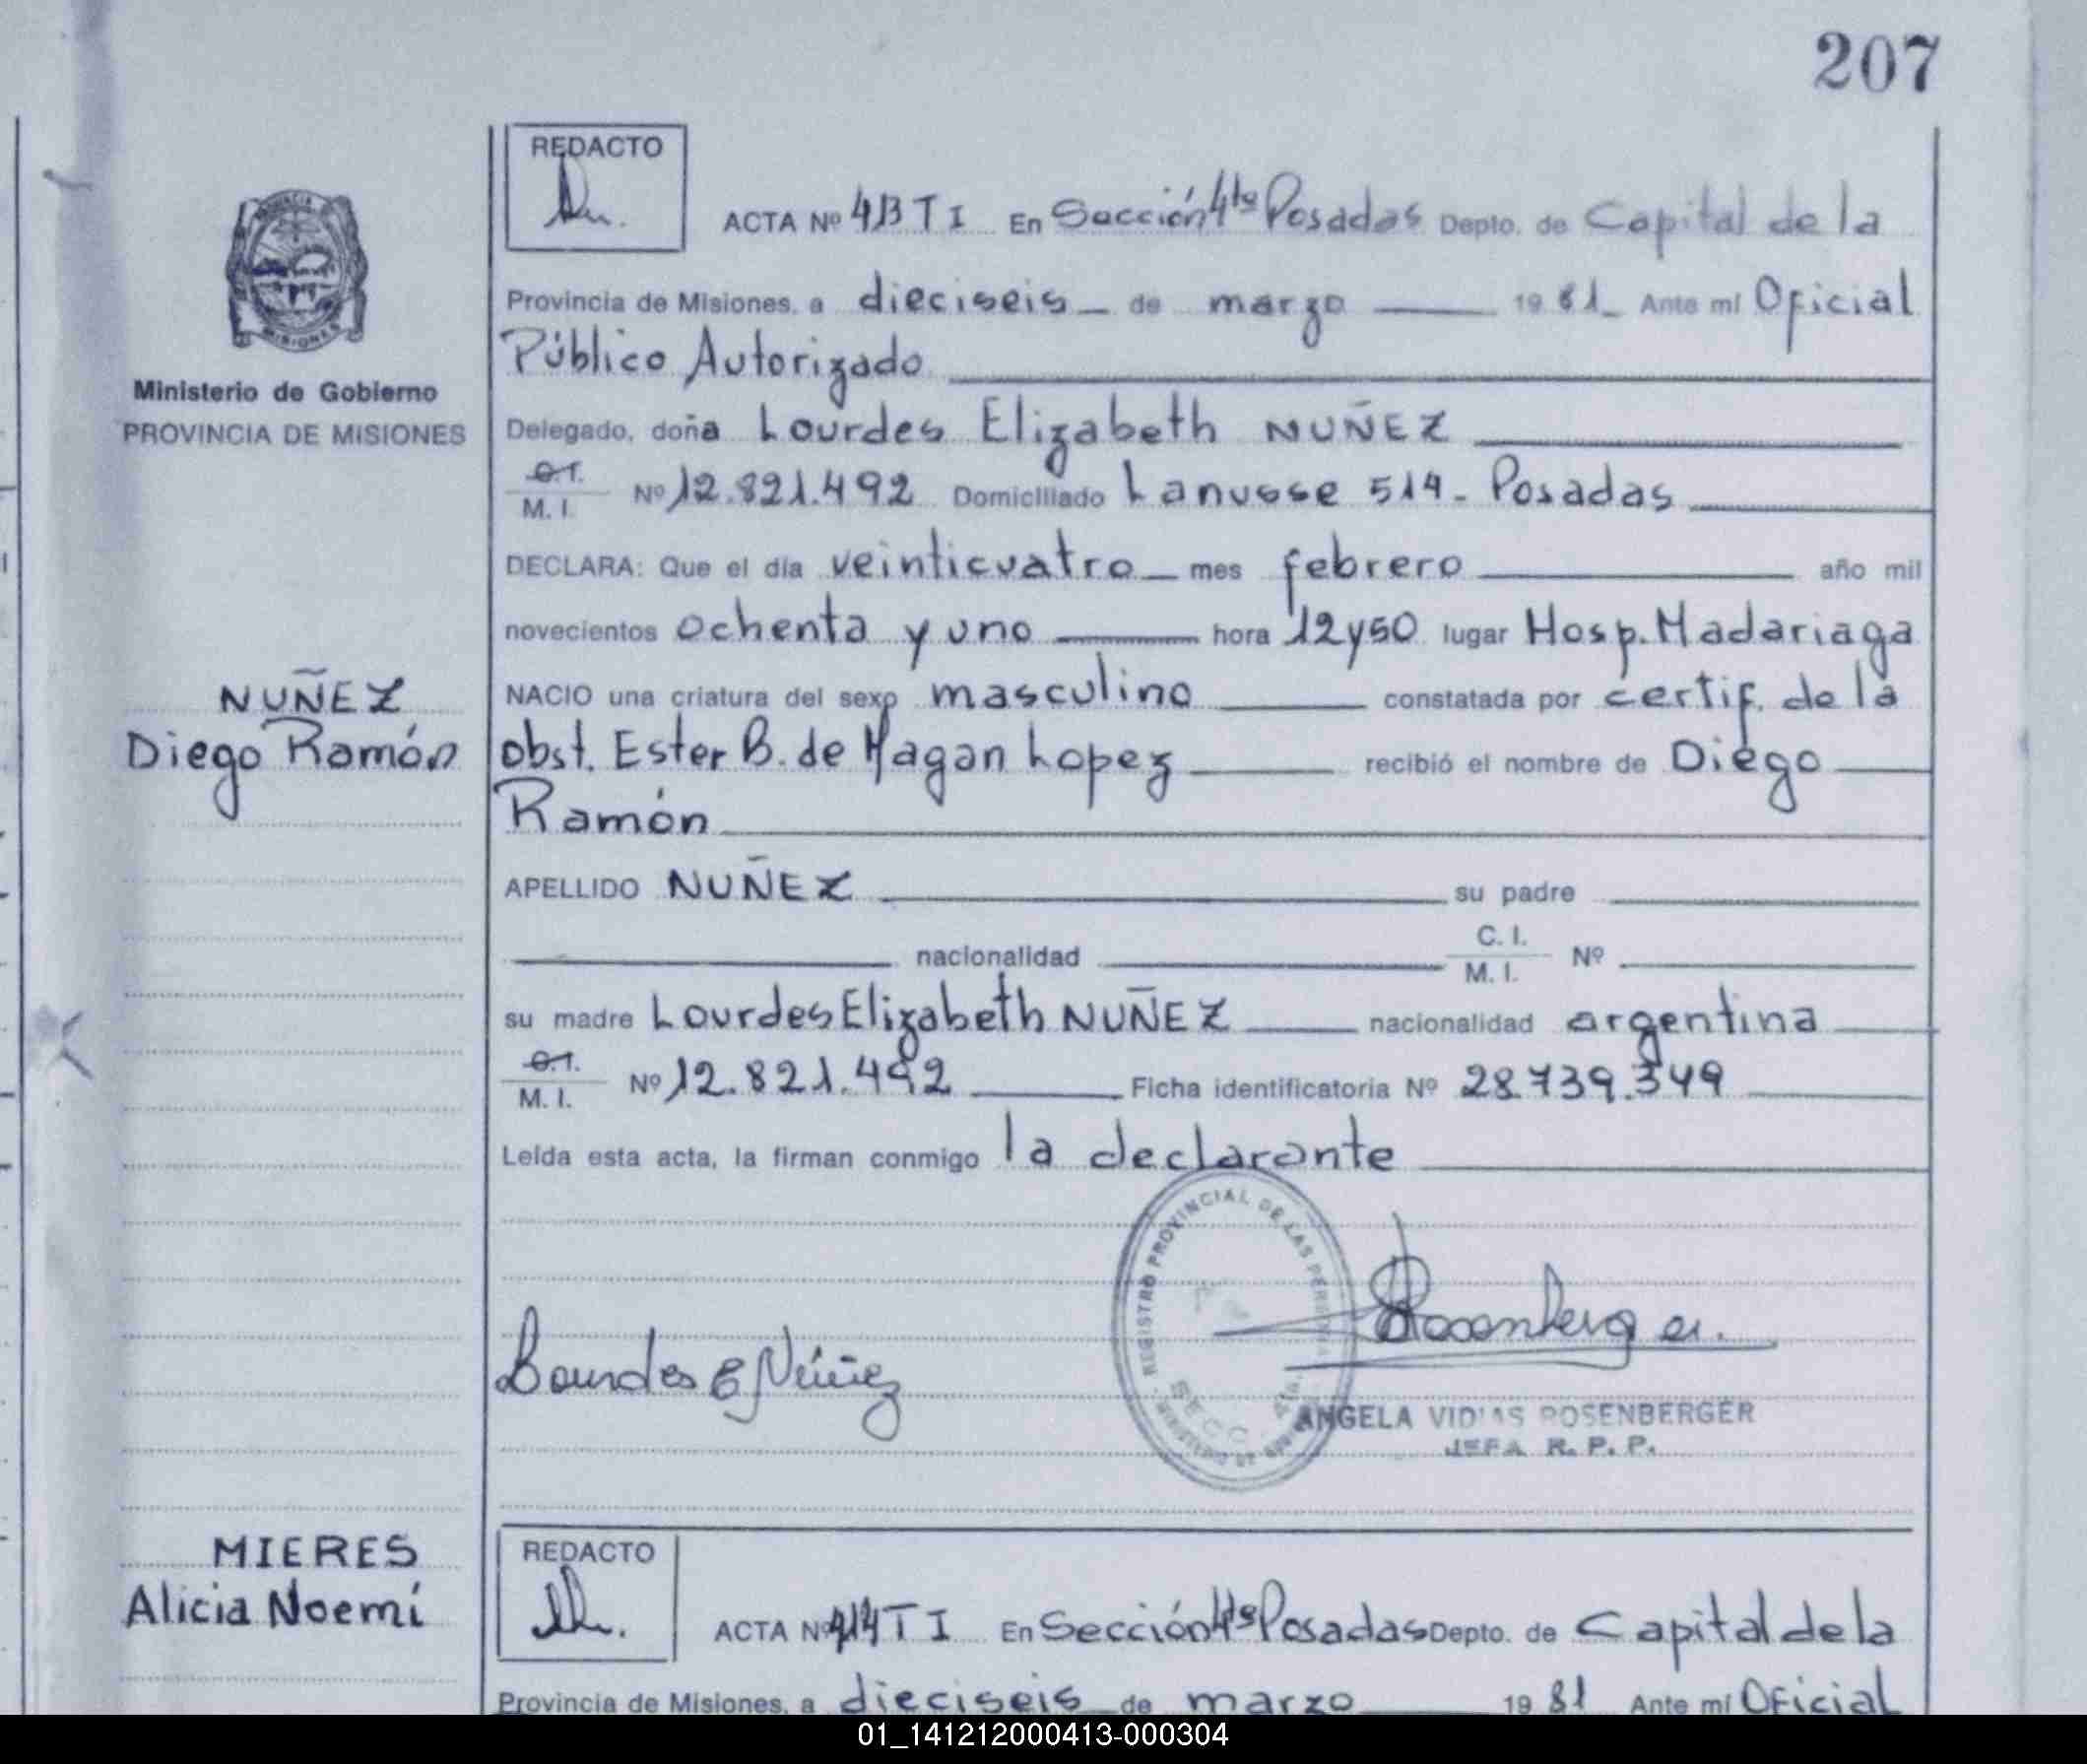 207
REDACTO
ACTA Nº 413 T I En Sección 4ta Posadas Depto. de Capital de la
Provincia de Misiones, a dieciseis de marzo 1981 Ante mí Oficial
Público Autorizado
Ministerio de Gobierno
PROVINCIA DE MISIONES
Delegado, doña Lourdes Elizabeth NUÑEZ
C.I.
M. I. Nº 12.821.492 Domiciliado Lanusse 514 - Posadas
DECLARA: Que el día veinticuatro mes febrero año mil
novecientos ochenta y uno hora 12y50 lugar Hosp. Madariaga
NUÑEZ
Diego Ramón
NACIO una criatura del sexo masculino constatada por certif. de la
obst. Ester B. de Magan Lopez recibió el nombre de Diego
Ramón
APELLIDO NUÑEZ su padre
nacionalidad C. I.
M. I. Nº
su madre Lourdes Elizabeth NUÑEZ nacionalidad argentina
C.I.
M. I. Nº 12.821.492 Ficha identificatoria Nº 28.739.349
Leída esta acta, la firman conmigo la declarante
REGISTRO PROVINCIAL DE LAS PERSONAS
SECC 4ta.
Lourdes E Núñez
ANGELA VIDIAS ROSENBERGER
JEFA R. P. P.
MIERES
Alicia Noemí
REDACTO
ACTA Nº 414 T I En Sección 4ta Posadas Depto. de Capital de la
Provincia de Misiones, a dieciseis de marzo 1981 Ante mí Oficial
01_141212000413-000304